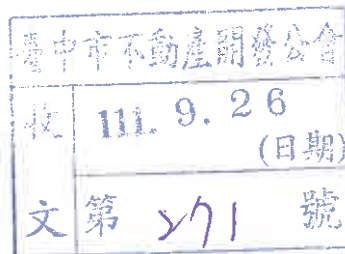 臺中市不動產開發公會
收文
111. 9. 26
(日期)
第 271 號